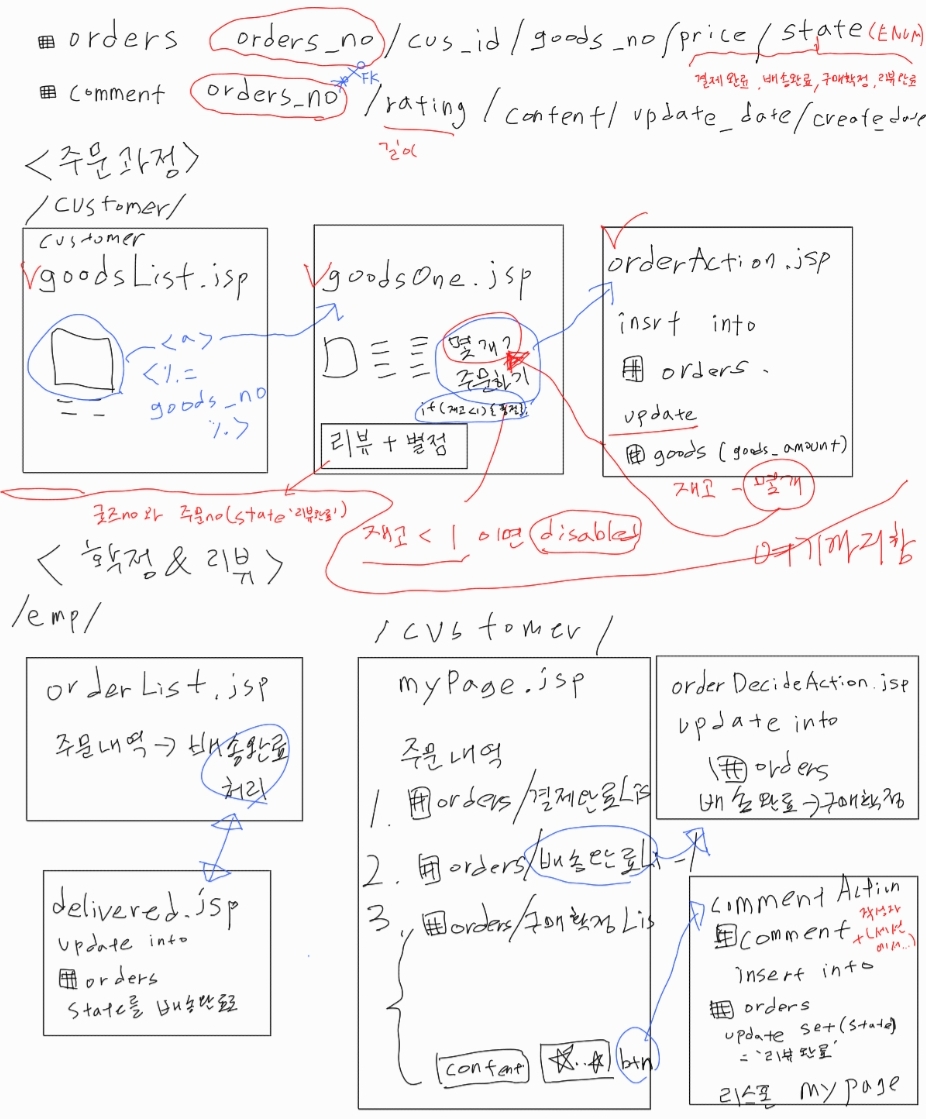 orders orders_no / cus_id / goods_no / price / state (ENUM)
결제완료, 배송완료, 구매확정, 리뷰완료
FK
comment orders_no / rating / content / update_date / create_date
길이
<주문과정>
/customer/
customer
goodsList.jsp
<a>
<%=
goods_no
%>
goodsOne.jsp
몇개?
주문하기
리뷰 + 별점
orderAction.jsp
insrt into
orders.
update
goods (goods_amount)
재고 - 몇개
굿즈no와 주문no(state '리뷰완료')
재고 < 1 이면 disabled
여기까지함
<확정 & 리뷰>
/emp/
orderList.jsp
주문내역 → 배송완료
처리
delivered.jsp
update into
orders
state를 배송완료로
/customer/
myPage.jsp
주문내역
1. orders/결제완료Lis
2. orders/배송완료Li
3. orders/구매확정Lis
content ☆..☆ btn
orderDecideAction.jsp
update into
orders
배송완료→구매확정
commentAction
comment
insert into
orders
update set(state)
= '리뷰완료'
리스폰 mypage